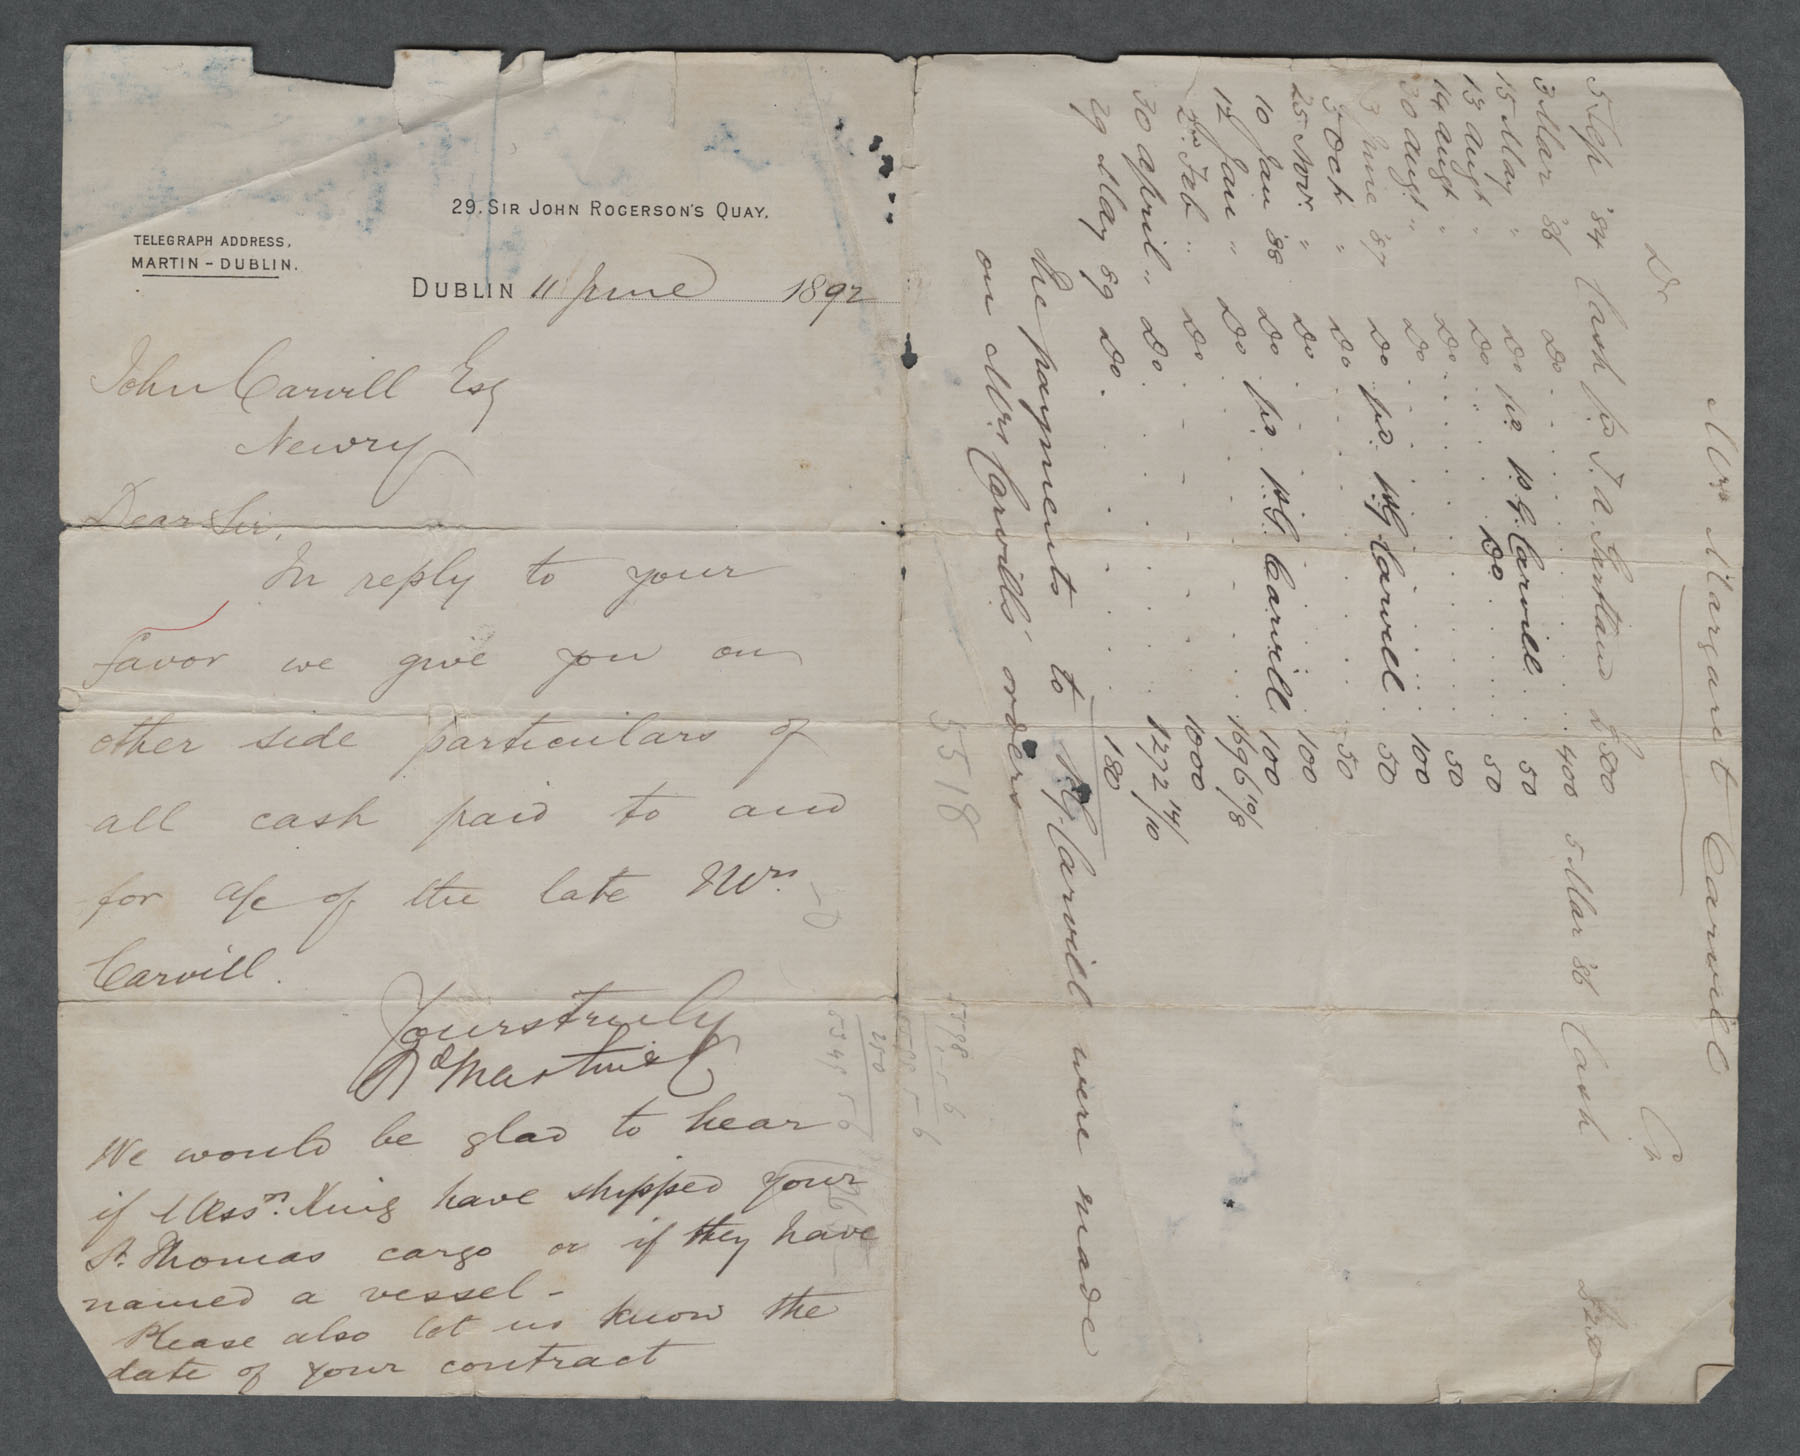 29. SIR JOHN ROGERSON'S QUAY.
TELEGRAPH ADDRESS,
MARTIN - DUBLIN.
DUBLIN 11 June 1892
John Carvill Esq
Newry
Dear Sir,
In reply to your
favor we give you on
other side particulars of
all cash paid to and
for a/c of the late Mrs
Carvill.
Yours truly
We would be glad to hear
if Messrs. King have shipped your
St. Thomas cargo or if they have
named a vessel -
Please also let us know the
date of your contract
Mrs Margaret Carvill
Dr Cr
5 Sep '84 Cash pd £800 5 Mar '86 Cash £250
3 Mar '86 Do . . . . 400
15 May " Do pd p G. Carvill . 50
13 augt " Do . . Do . . . 50
14 augt " Do . . . . 50
30 augt " Do . . . . 100
3 June '87 Do pd. pG Carvill . 50
5 Oct " Do . . . . 50
25 Novr " Do . . . . 100
10 Jan '88 Do pd. pG. Carvill 100
12 Jan " Do . . . . 1696 10/8
Feb " Do . . . . 1000
30 april " Do . . . . 1292 14/10
29 May 89 Do . . . . 180
the payments to pG. Carvill were made
on Mrs Carvills orders
5518
5588 5 6
250